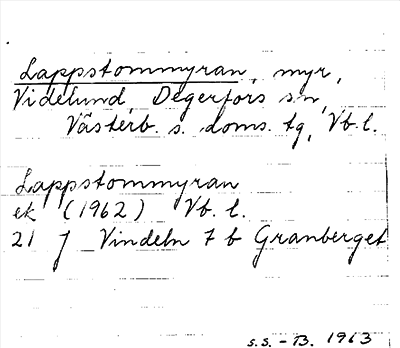 Lappstommyran, myr,
Videlund, Degerfors sn,
Västerb. s. doms. tg, Vb. l.
Lappstommyran
ek (1962) Vb. l.
21 J Vindeln 7 b Granberget
S.S. - B. 1963